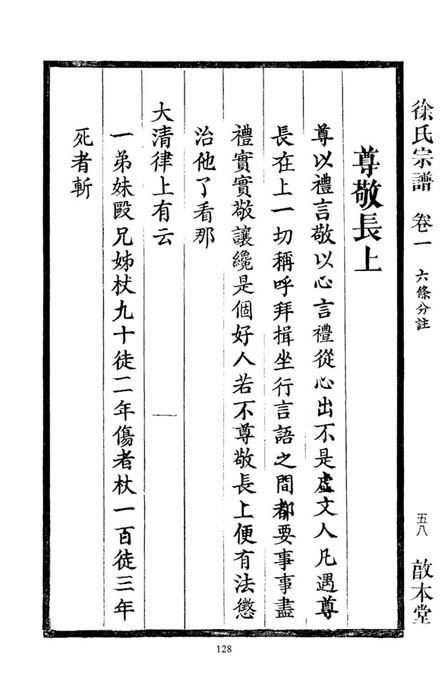 徐氏宗譜 卷一 六條分註 五八 敨本堂
尊敬長上
尊以禮言敬以心言禮從心出不是虛文人凡遇尊
長在上一切稱呼拜揖坐行言語之間都要事事盡
禮實實敬讓纔是個好人若不尊敬長上便有法懲
治他了看那
大清律上有云
一弟妹毆兄姊杖九十徒二年傷者杖一百徒三年
死者斬
128